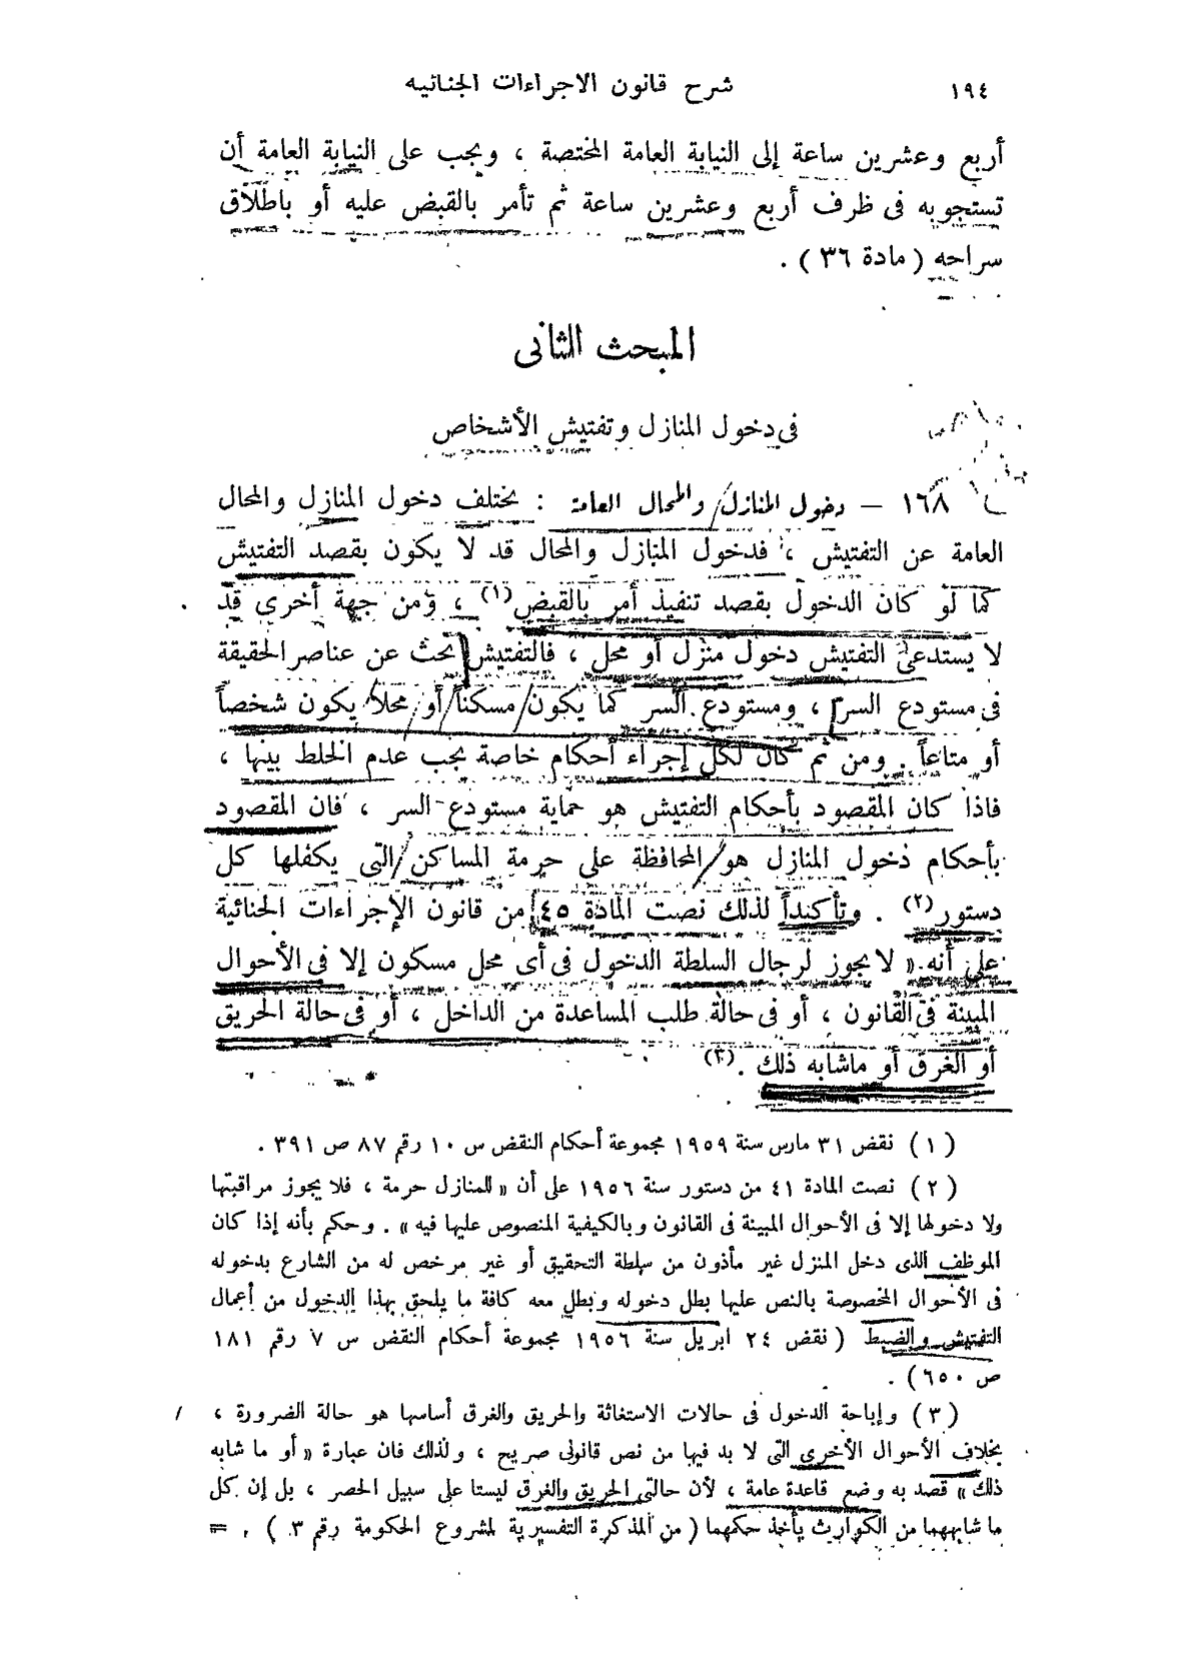 ١٩٤
شرح قانون الاجراءات الجنائيه
أربع وعشرين ساعة إلى النيابة العامة المختصة ، ويجب على النيابة العامة أن
تستجوبه فى ظرف أربع وعشرين ساعة ثم تأمر بالقبض عليه أو باطلاق
سراحه ( مادة ٣٦ ) .
المبحث الثانى
فى دخول المنازل وتفتيش الأشخاص
١٦٨ — دخول المنازل والمحال العامة : يختلف دخول المنازل والمحال
العامة عن التفتيش ، فدخول المنازل والمحال قد لا يكون بقصد التفتيش
كما لو كان الدخول بقصد تنفيذ أمر بالقبض (١) ، ومن جهة أخرى قد
لا يستدعى التفتيش دخول منزل أو محل ، فالتفتيش بحث عن عناصر الحقيقة
فى مستودع السر ، ومستودع السر كما يكون مسكناً أو محلا يكون شخصاً
أو متاعاً . ومن ثم كان لكل إجراء أحكام خاصة يجب عدم الخلط بينها ،
فاذا كان المقصود بأحكام التفتيش هو حماية مستودع السر ، فان المقصود
بأحكام دخول المنازل هو المحافظة على حرمة المساكن التى يكفلها كل
دستور (٢) . وتأكيداً لذلك نصت المادة ٤٥ من قانون الإجراءات الجنائية
على أنه « لا يجوز لرجال السلطة الدخول فى أى محل مسكون إلا فى الأحوال
المبينة فى القانون ، أو فى حالة طلب المساعدة من الداخل ، أو فى حالة الحريق
أو الغرق أو ماشابه ذلك . (٣)
( ١ ) نقض ٣١ مارس سنة ١٩٥٩ مجموعة أحكام النقض س ١٠ رقم ٨٧ ص ٣٩١ .
( ٢ ) نصت المادة ٤١ من دستور سنة ١٩٥٦ على أن « للمنازل حرمة ، فلا يجوز مراقبتها
ولا دخولها إلا فى الأحوال المبينة فى القانون وبالكيفية المنصوص عليها فيه » . وحكم بأنه إذا كان
الموظف الذى دخل المنزل غير مأذون من سلطة التحقيق أو غير مرخص له من الشارع بدخوله
فى الأحوال المخصوصة بالنص عليها بطل دخوله وبطل معه كافة ما يلحق بهذا الدخول من أعمال
التفتيش والضبط ( نقض ٢٤ ابريل سنة ١٩٥٦ مجموعة أحكام النقض س ٧ رقم ١٨١
ص ٦٥٠ ) .
( ٣ ) وإباحة الدخول فى حالات الاستغاثة والحريق والغرق أساسها هو حالة الضرورة ،
بخلاف الأحوال الأخرى التى لا بد فيها من نص قانونى صريح ، ولذلك فان عبارة « أو ما شابه
ذلك » قصد به وضع قاعدة عامة ، لأن حالتى الحريق والغرق ليستا على سبيل الحصر ، بل إن كل
ما شابههما من الكوارث يأخذ حكمهما ( من المذكرة التفسيرية لمشروع الحكومة رقم ٣ ) , =